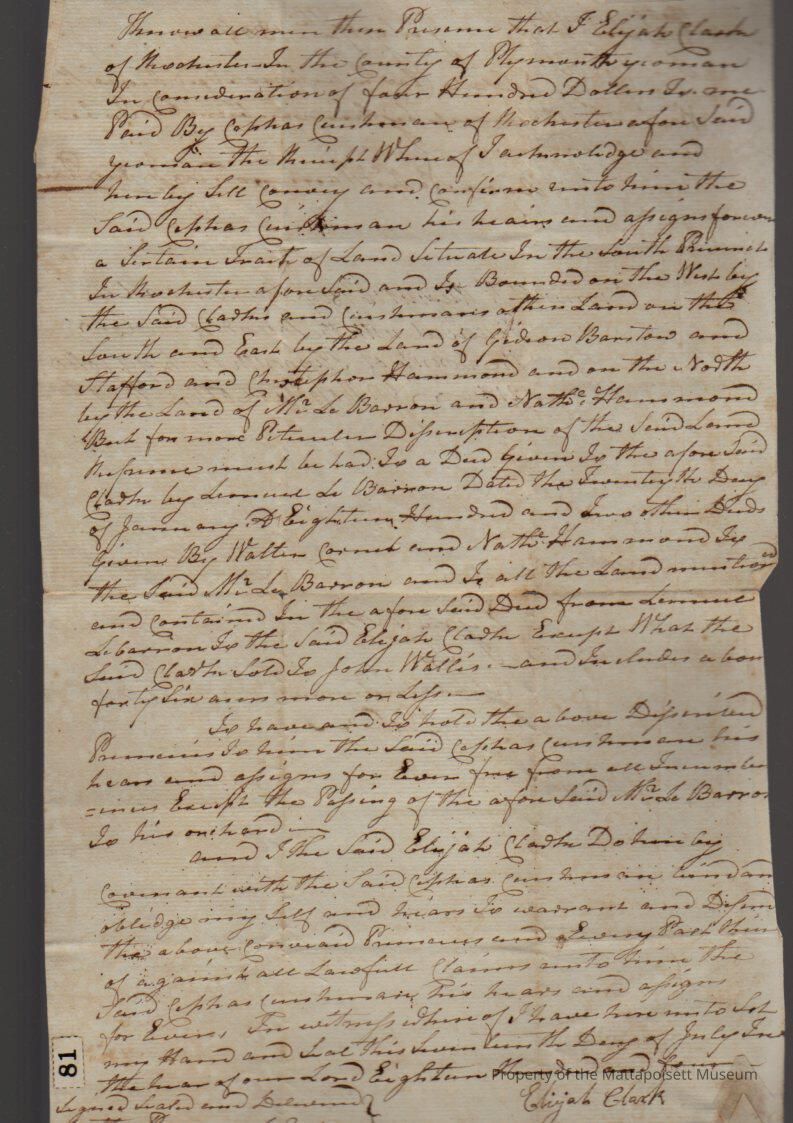 Know all men these Presence that I Elijah Clark
of Rochester In the County of Plymouth yeoman
In Consideration of four Hundred Dollers To me
Paid By Cephas Cushman of Rochester afore Said
yeoman the Receipt Where of I acknowledge and
hereby Sell Convey and confirm unto him the
Said Cephas Cushman his heairs and assigns forever
a Sertain Tract of Land Situate In the South
In Rochester afore Said and Is Bounded on the West by
the Said Clarks and Cushmans other Land on the
South and East by the Land of Gideon Barstow and
Stafford and Christopher Hammond and on the North
by the Land of Mr Le Barron and Nathl Hammond
But for more Discription of the Said Land
must be had To a Deed Given To the afore Said
Clark by Lemuel Le Barron Dated the Twentyth Day
of January Eighteen Hundred and Two other Deeds
Given By Walter and Nathl Hammond To
the Said Mr Le Barron and Is all the Land mentioned
and contained In the afore Said Deed from Lemuel
Lebarron To the Said Elijah Clark Except What the
Said Clark Sold To John Wallis. and Includes abou
forty Six acres more or Less
To have and To hold the above
Premises To him the Said Cephas Cushman his
hears and assigns for Ever free from all Incumber
=ences Except the Passing of the afore Said Mr Le Barron
To his orchard
and I the Said Elijah Clark Do hereby
covenant with the Said Cephas Cushman
obledge my Self and hears To warrant and
the above Premises and Every Part
of against all Lawfull Claims unto him the
Said Cephas Cushman his hears and assigns
for Ever. In witness where of I have here unto Set
my Hand and Seal this Day of July In
the year of our Lord Eighteen Hundred and four
Property of the Mattapoisett Museum
Signed Sealed and Delivered
Elijah Clark
81